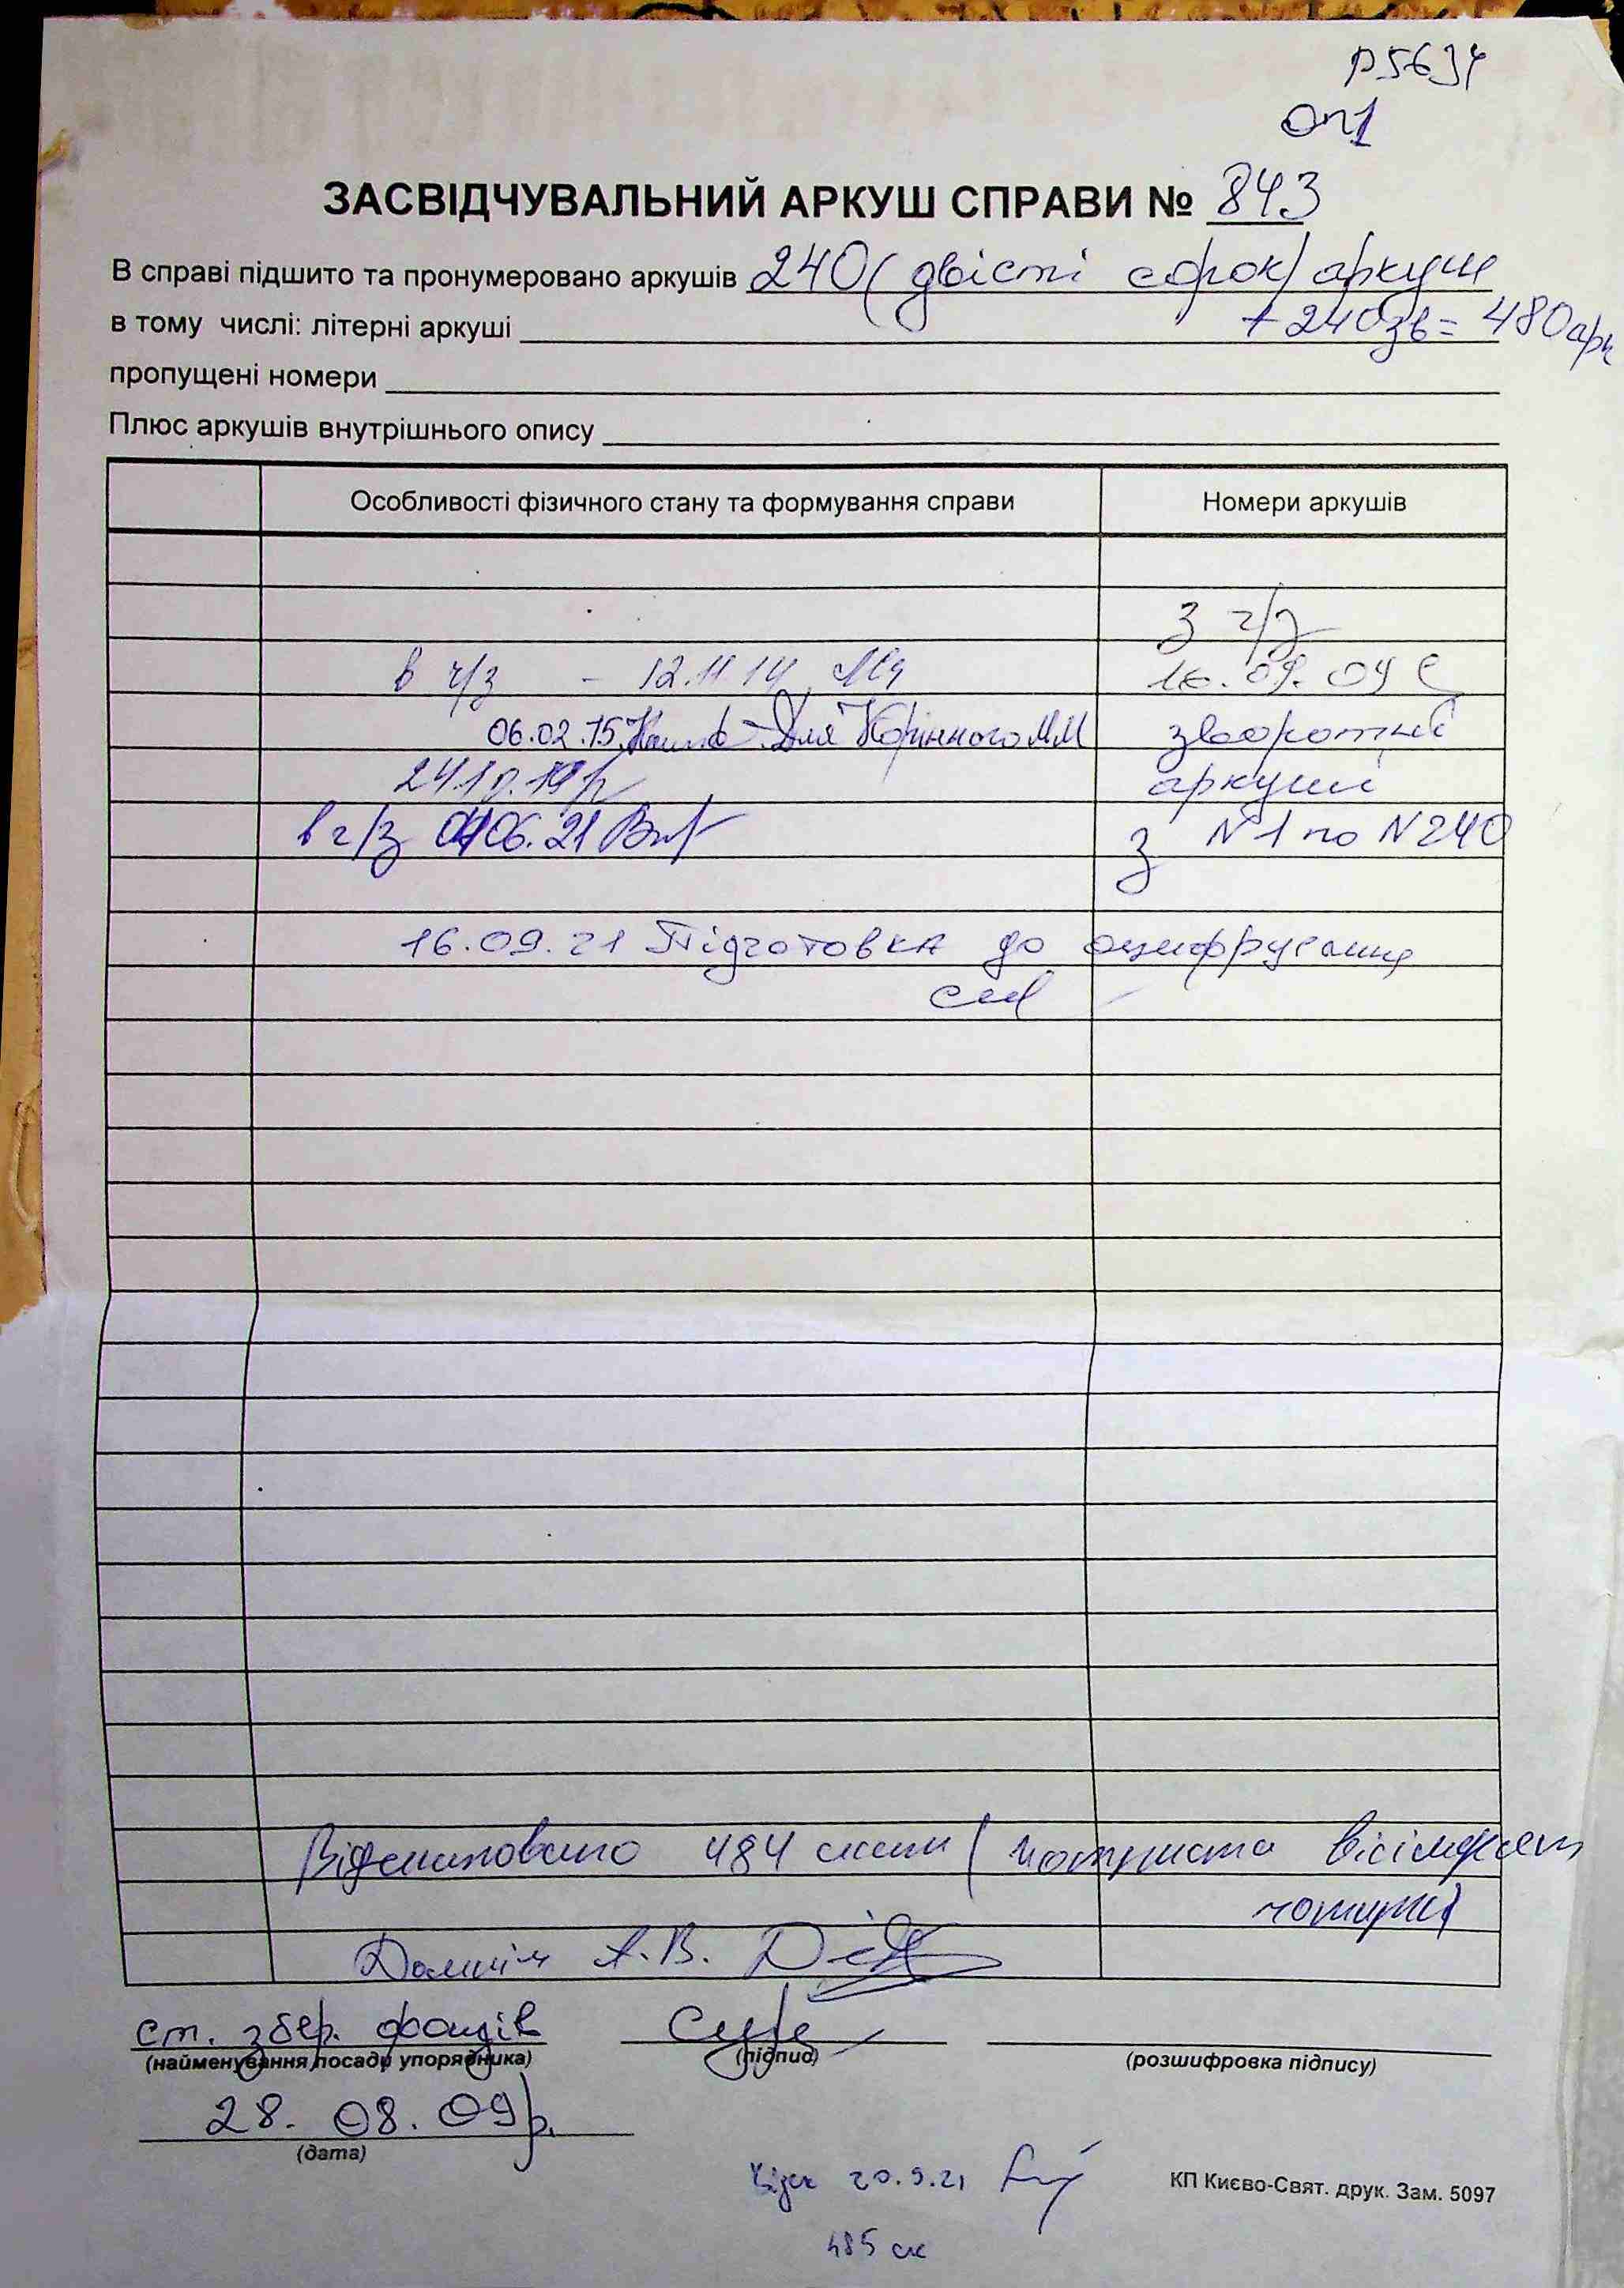 Р5634
Оп1
ЗАСВІДЧУВАЛЬНИЙ АРКУШ СПРАВИ № 843
В справі підшито та пронумеровано аркушів 240 (двісті сорок) аркуші
+ 240зв = 480 арк
в тому числі: літерні аркуші
пропущені номери
Плюс аркушів внутрішнього опису
Особливості фізичного стану та формування справи Номери аркушів
З ч/з
в ч/з - 12.11.14 16.09.09
06.02.15. Для Корінного ММ зворотні
24.10.19р аркуші
в ч/з 06.21 з N 1 по N 240
16.09.21 Підготовка до оцифрування
Відскановано 484 скани (чотириста вісімдесят
чотири)
А.В.
ст. збер. фондів
(найменування посади упорядника) (підпис) (розшифровка підпису)
28. 08. 09р.
(дата)
20.9.21
КП Києво-Свят. друк. Зам. 5097
485 ск